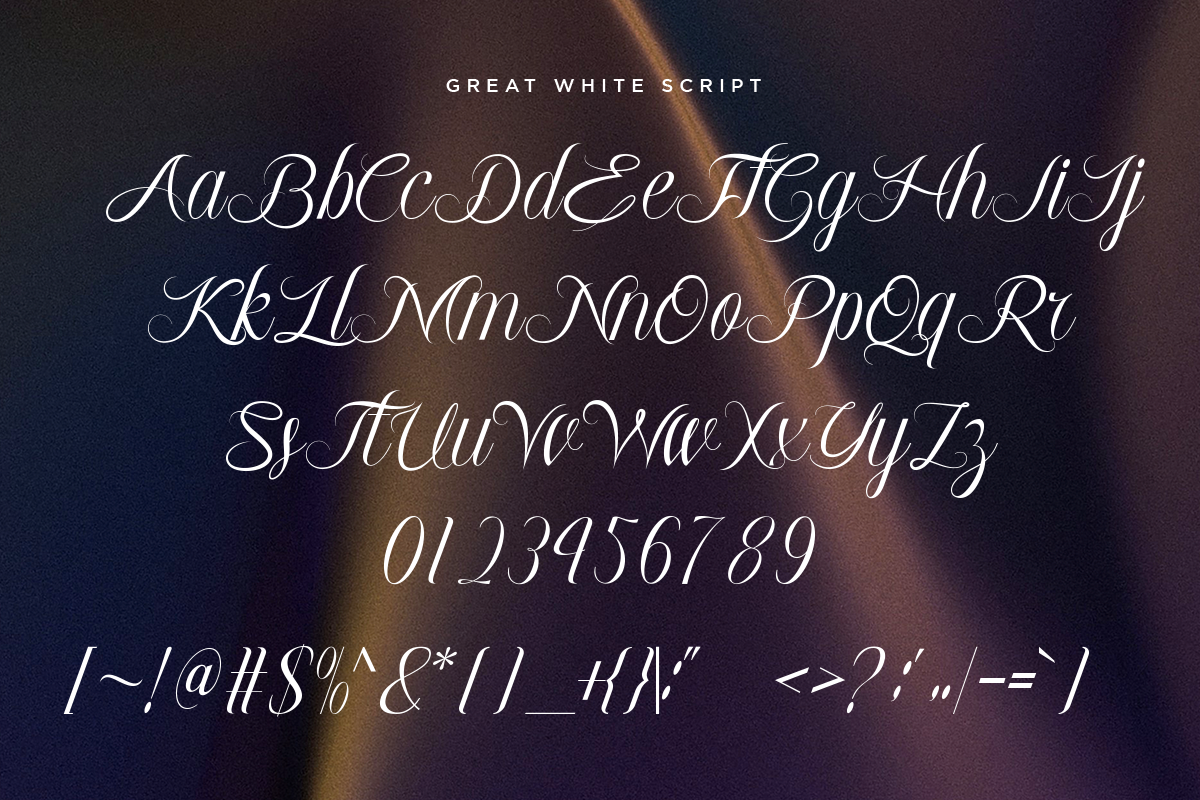 GREAT WHITE SCRIPT
AaBbCcDdEeFfGgHhIiJj
KkLlMmNnOoPpQqRr
SsTtUuVvWwXxYyZz
0123456789
[~!@#$%^&*()_+{}|:" <>?;',./-=`]